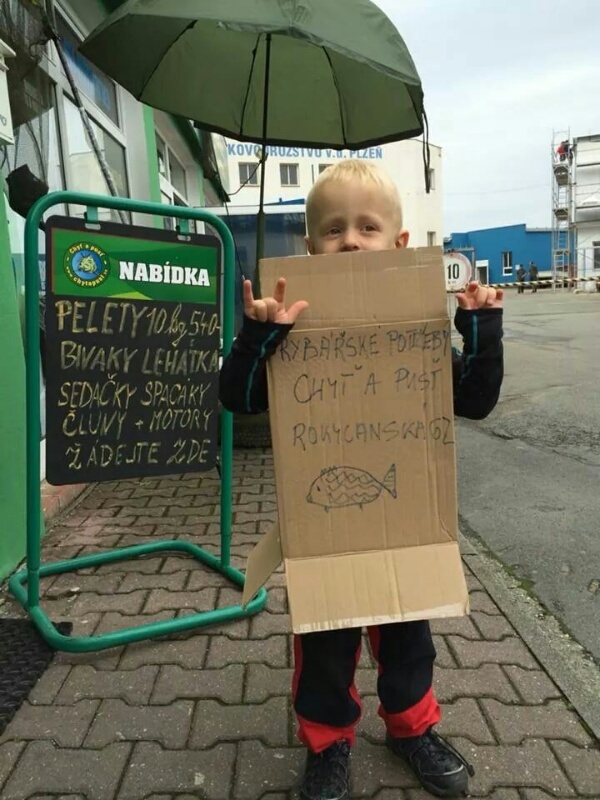 KOVODRUŽSTVO v.d. PLZEŇ
Chyť a pusť
www.chytapust.cz
NABÍDKA
PELETY 10 kg 540,-
BIVAKY LEHÁTKA
SEDAČKY SPACÁKY
ČLUNY + MOTORY
ŽÁDEJTE ZDE
10
RYBÁŘSKÉ POTŘEBY
CHYŤ A PUSŤ
ROKYCANSKÁ 62